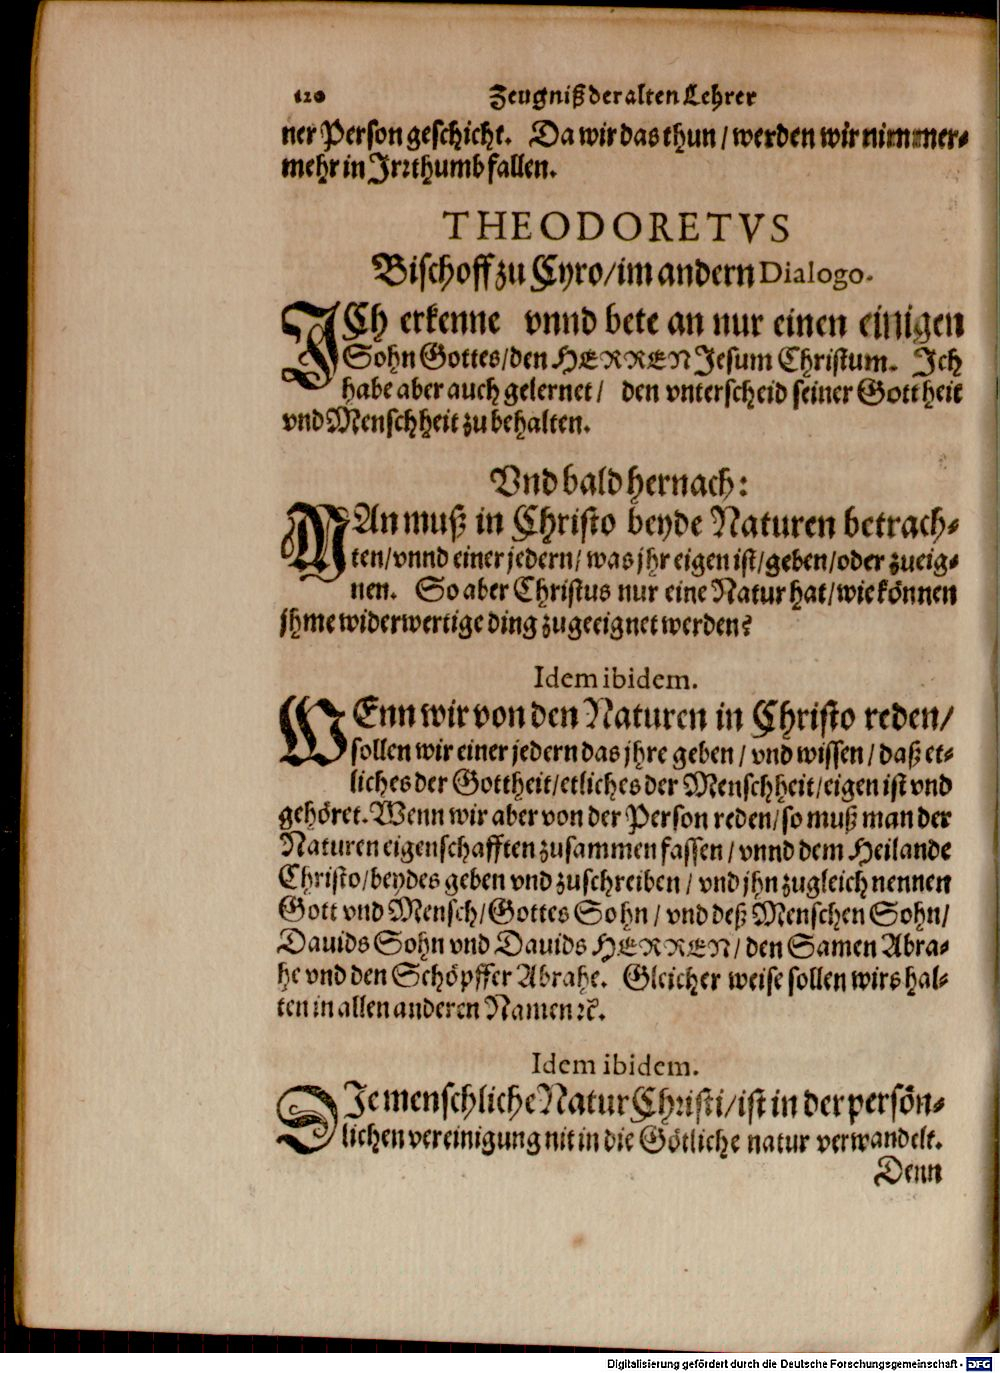 120 Zeugniß der alten Lehrer
ner Person geschicht. Da wir das thun / werden wir nimmer-
mehr in Irrthumb fallen.
THEODORETVS
Bischoff zu Cyro / im andern Dialogo.
ICh erkenne vnnd bete an nur einen einigen
Sohn Gottes / den HERREN Jesum Christum. Ich
habe aber auch gelernet / den vnterscheid seiner Gottheit
vnd Menschheit zu behalten.
Vnd bald hernach:
MAn muß in Christo beyde Naturen betrach-
ten / vnnd einer jedern / was jhr eigen ist / geben / oder zueig-
nen. So aber Christus nur eine Natur hat / wie können
jhme widerwertige ding zugeeignet werden?
Idem ibidem.
WEnn wir von den Naturen in Christo reden /
sollen wir einer jedern das jhre geben / vnd wissen / daß et-
liches der Gottheit / etliches der Menschheit / eigen ist vnd
gehöret. Wenn wir aber von der Person reden / so muß man der
Naturen eigenschafften zusammen fassen / vnnd dem Heilande
Christo / beydes geben vnd zuschreiben / vnd jhn zugleich nennen
Gott vnd Mensch / Gottes Sohn / vnd deß Menschen Sohn /
Dauids Sohn vnd Dauids HERREN / den Samen Abra-
he vnd den Schöpffer Abrahe. Gleicher weise sollen wirs hal-
ten in allen anderen Namen ꝛc.
Idem ibidem.
DIe menschliche Natur Christi / ist in der persön-
lichen vereinigung nit in die Götliche natur verwandelt.
Denn
Digitalisierung gefördert durch die Deutsche Forschungsgemeinschaft - DFG